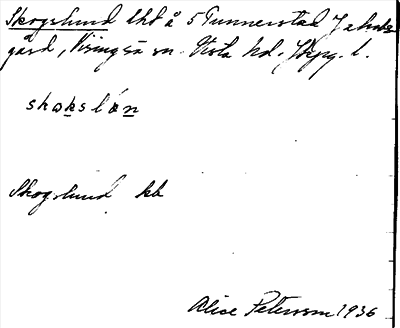 Skogslund lht å 5 Tunnerstad Jakobs
gård, Visingsö sn. Vista hd. Jkpg. l.
skoksløn
Skogslund kb
Alice Peterson 1936